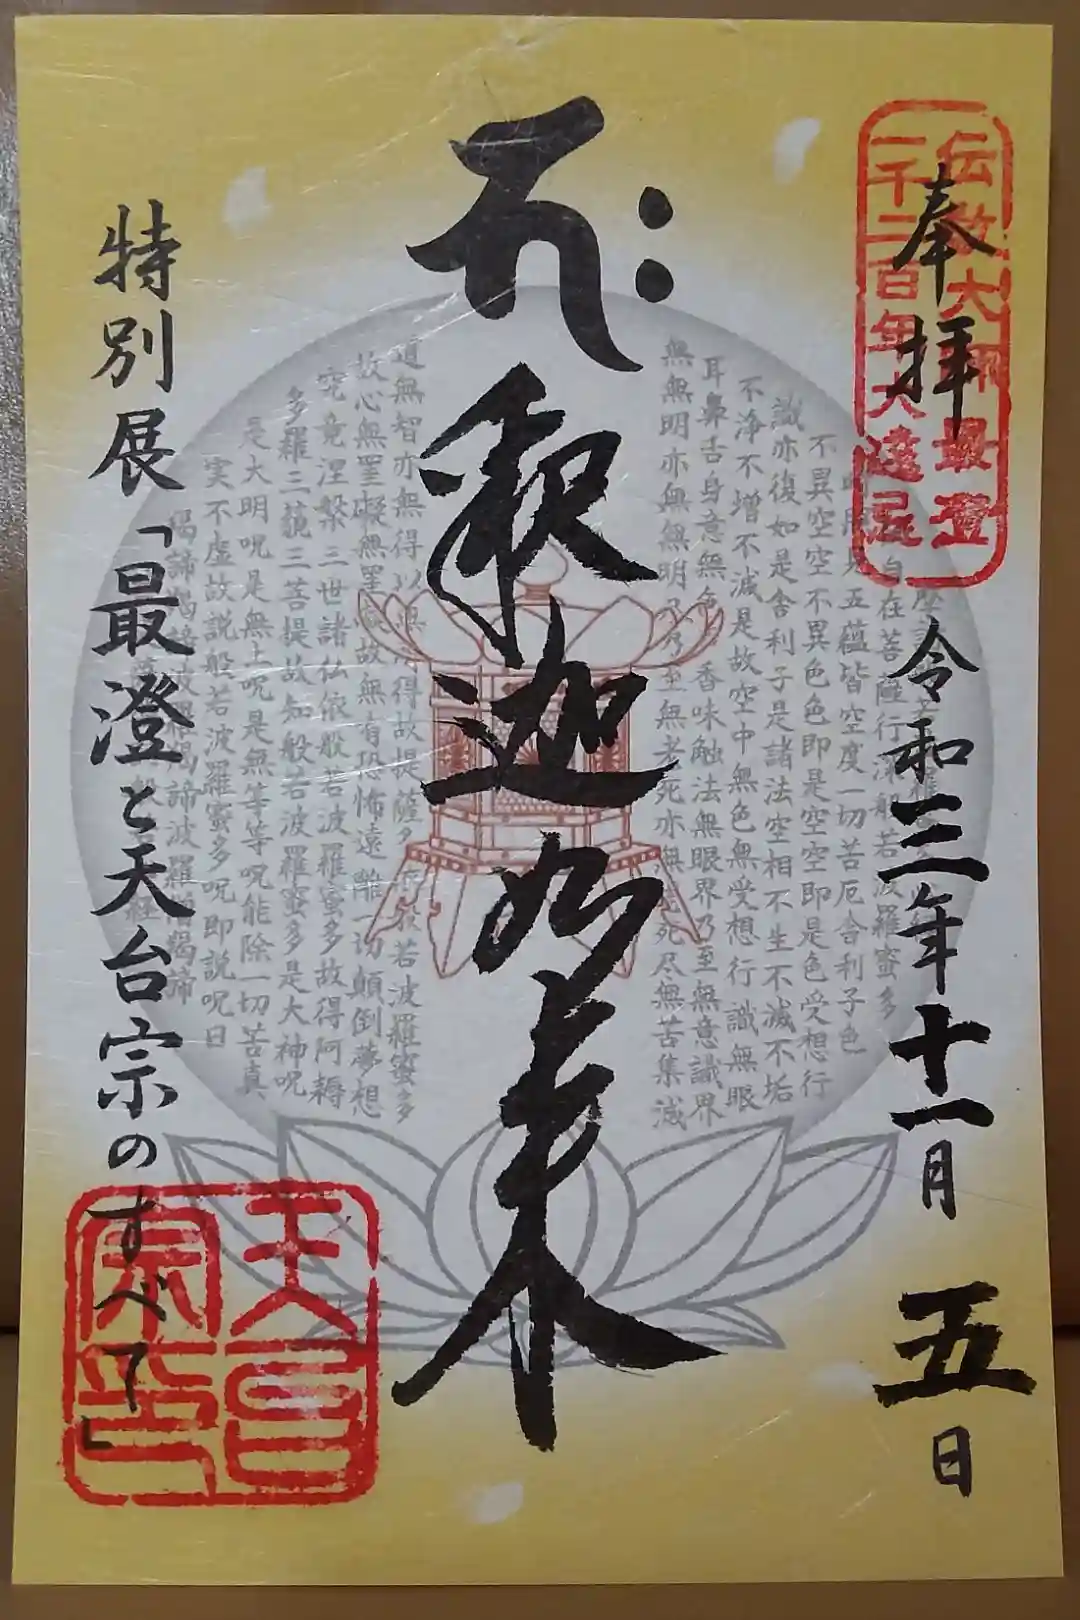 伝教大師最澄
一千二百年大遠忌
奉拝
令和三年十一月五日
自在菩薩行深般若波羅蜜多
見五蘊皆空度一切苦厄舎利子色
不異空空不異色色即是空空即是色受想行
識亦復如是舎利子是諸法空相不生不滅不垢
不浄不増不減是故空中無色無受想行識無眼
耳鼻舌身意無色香味触法無眼界乃至無意識界
無無明亦無無明尽乃至無老死亦無老死尽無苦集滅
釈迦如来
道無智亦無得以無所得故提薩多依般若波羅蜜多
故心無罣礙無罣礙故無有恐怖遠離一切顛倒夢想
究竟涅槃三世諸仏依般若波羅蜜多故得阿耨
多羅三藐三菩提故知般若波羅蜜多是大神呪
是大明呪是無上呪是無等等呪能除一切苦真
実不虚故説般若波羅蜜多呪即説呪曰
羯諦羯諦波羅羯諦波羅僧羯諦
特別展「最澄と天台宗のすべて」
天台宗印